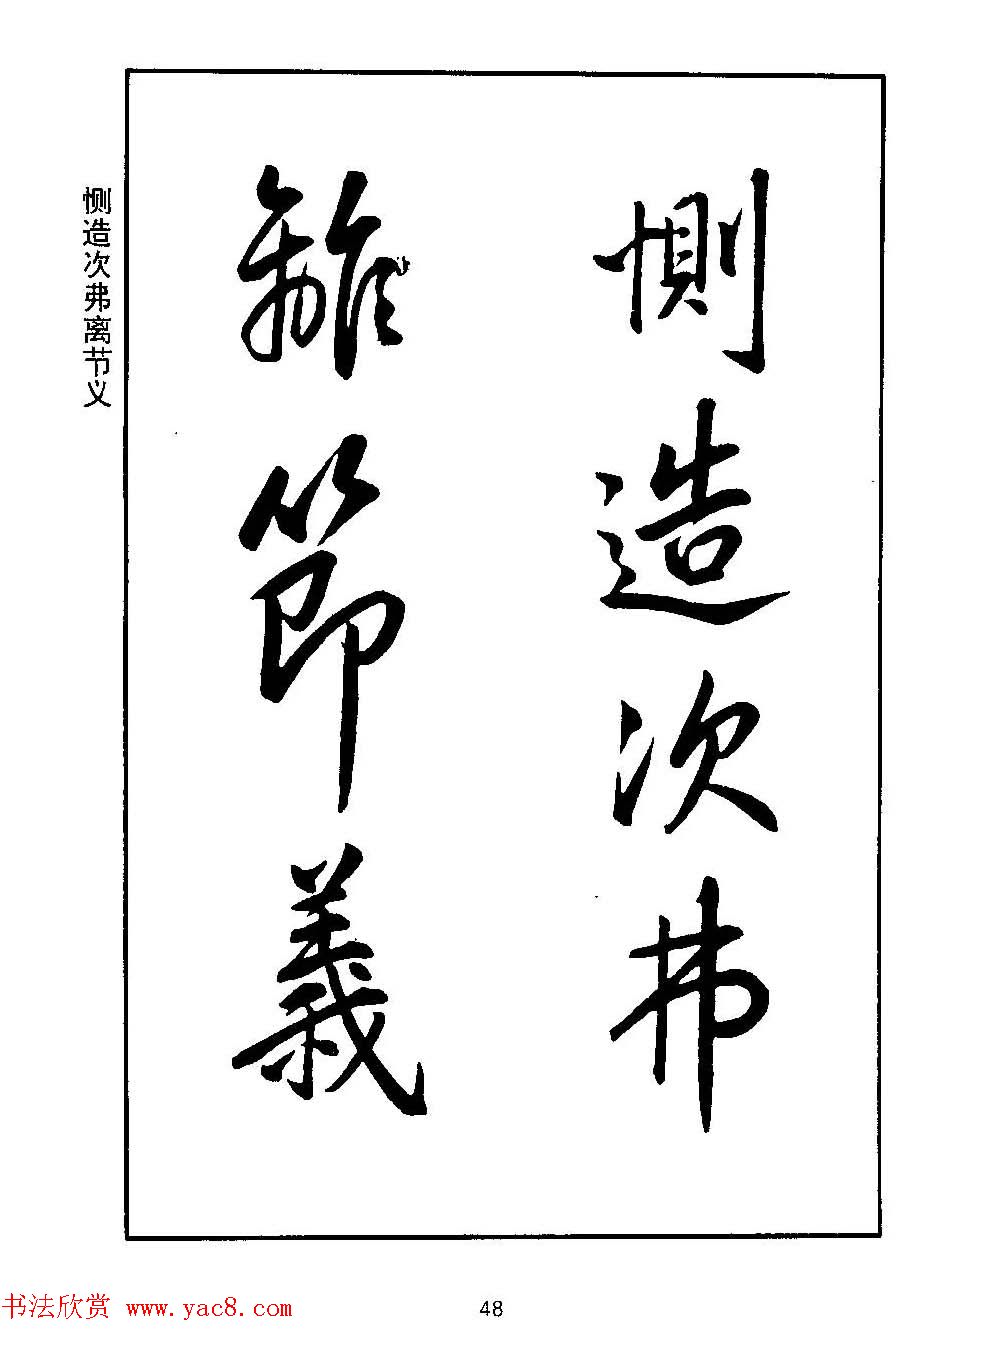 惻造次弗
離節義
恻造次弗离节义
书法欣赏 www.yac8.com
48